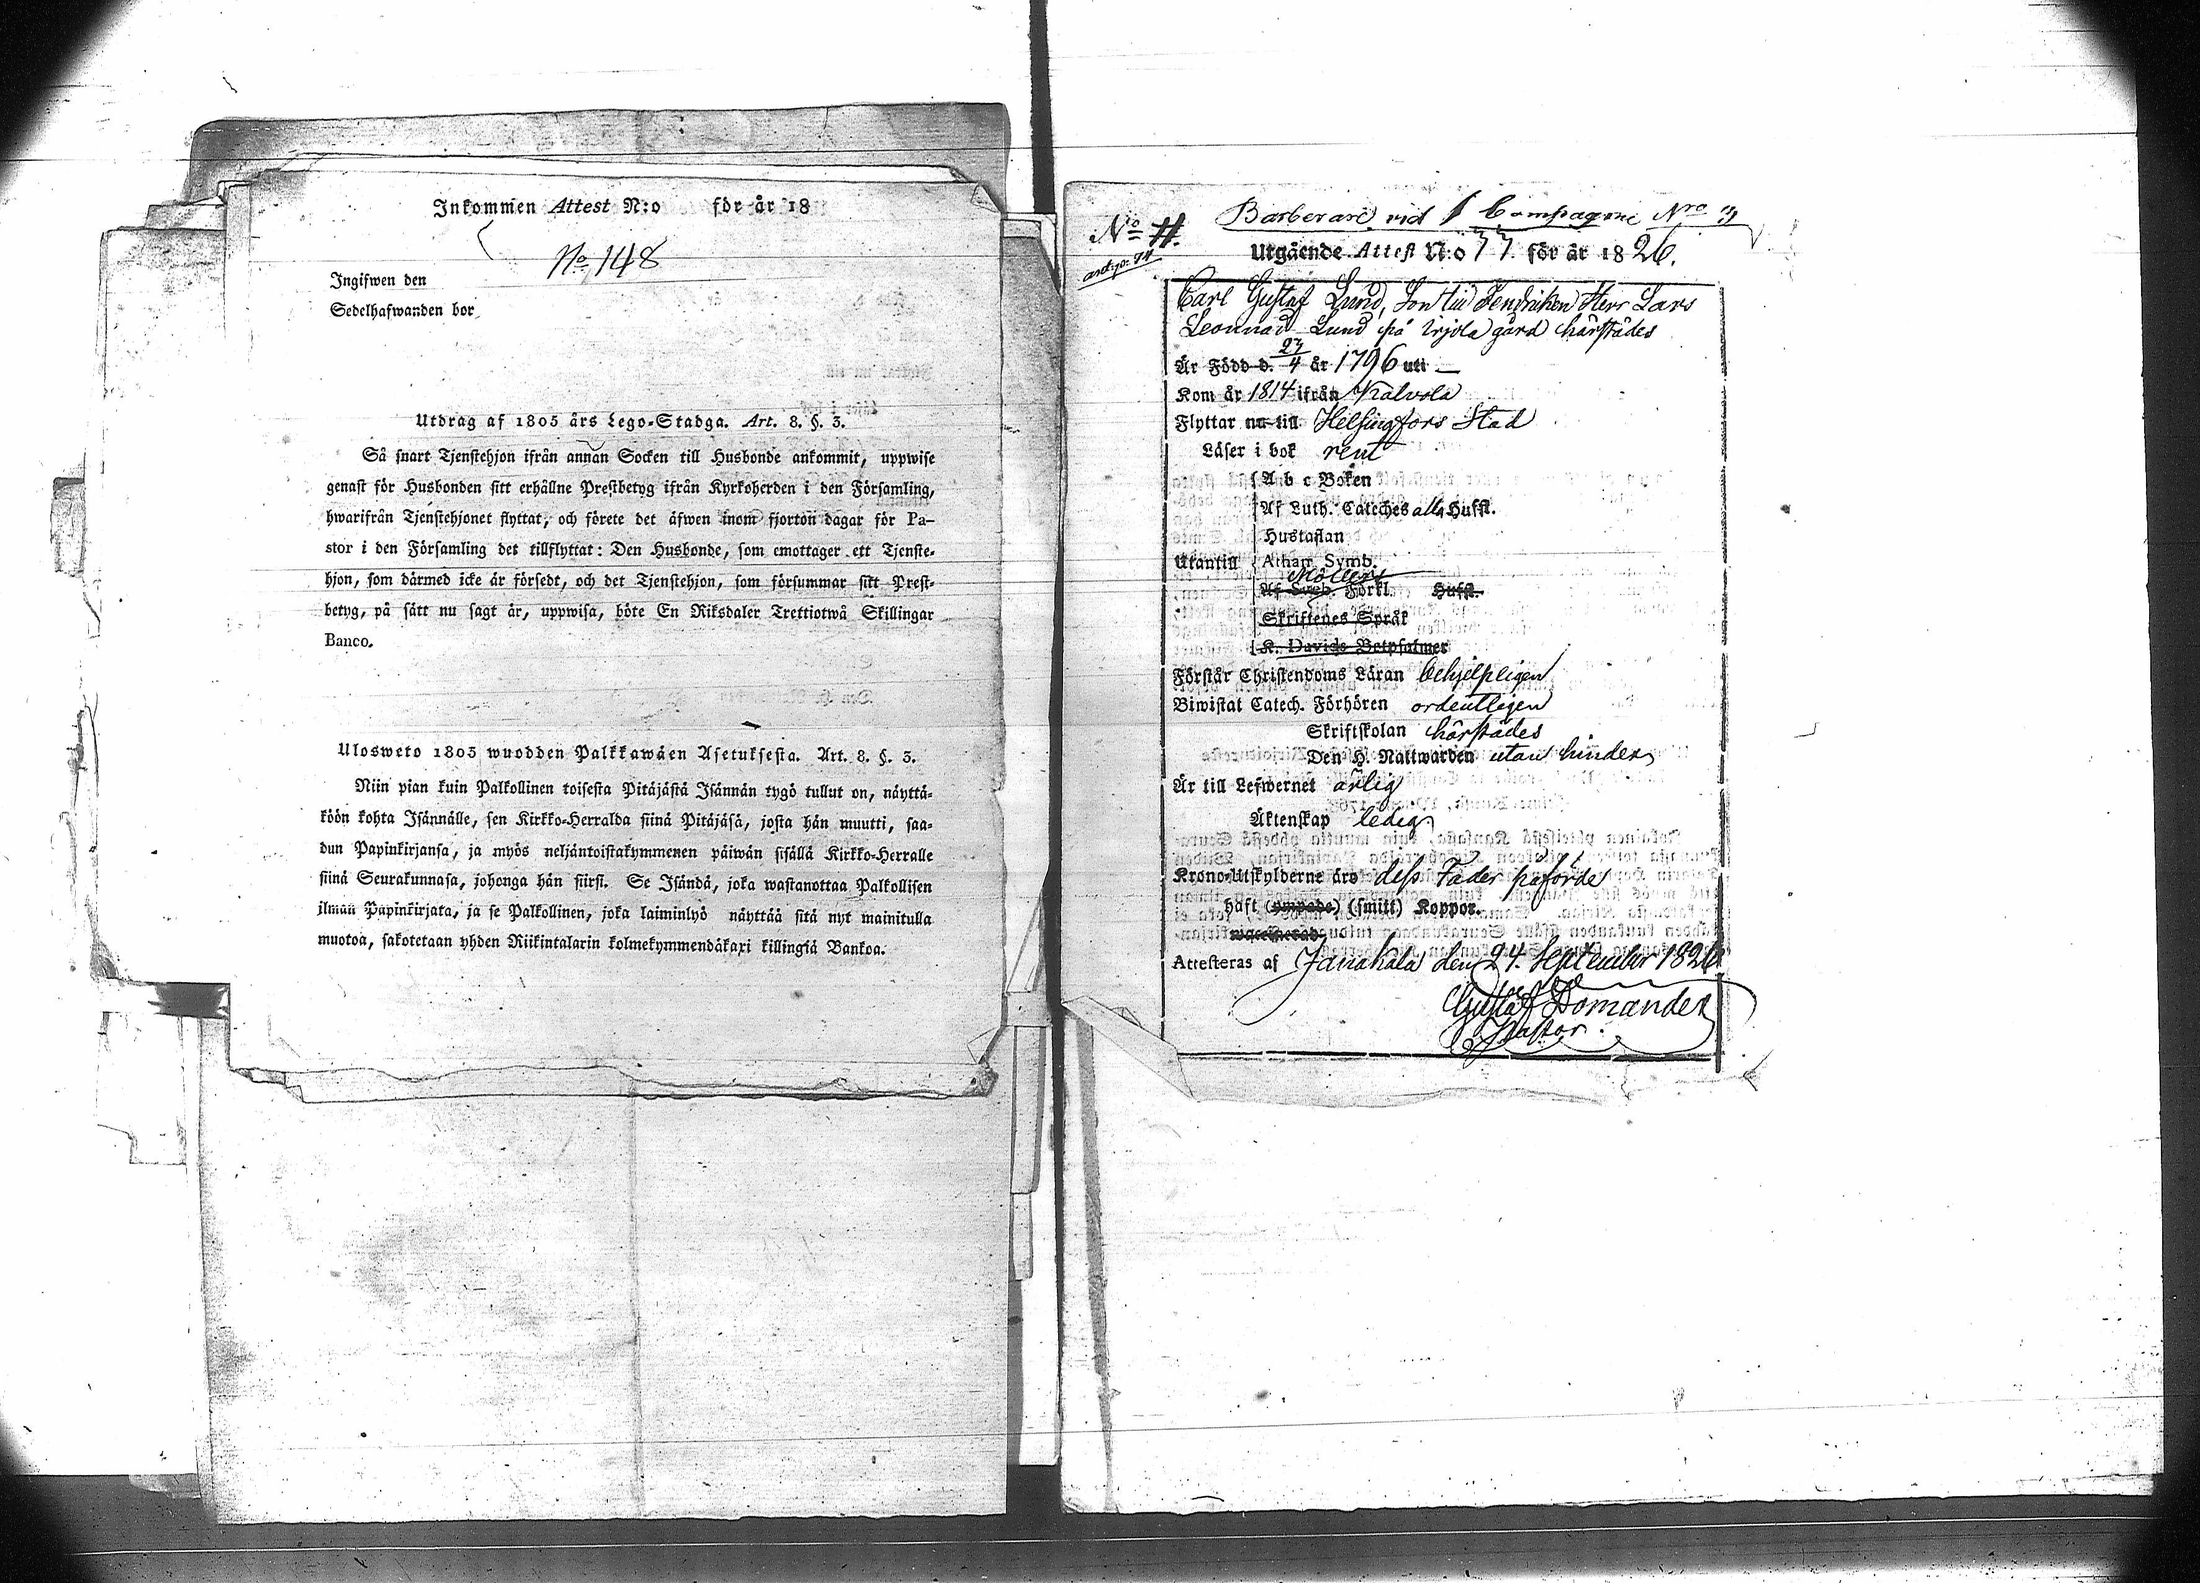 Inkommen Attest N:o för år 18
No 148
Ingifwen den
Sedelhafwanden bor
Utdrag af 1805 års Lego-Stadga. Art. 8. §. 3.
Så snart Tjenstehjon ifrån annan Socken till Husbonde ankommit, uppwise
genast för Husbonden sitt erhållne Prestbetyg ifrån Kyrkoherden i den Församling,
hwarifrån Tjenstehjonet flyttat, och förete det äfwen inom fjorton dagar för Pa-
stor i den Församling det tillflyttat: Den Husbonde, som emottager ett Tjenste-
hjon, som därmed icke är försedt, och det Tjenstehjon, som försummar sitt Prest-
betyg, på sätt nu sagt är, uppwisa, böte En Riksdaler Trettiotwå Skillingar
Banco.
Ulosweto 1805 wuodden Palkkawäen Asetuksesta. Art. 8. §. 3.
Niin pian kuin Palkollinen toisesta Pitäjästä Isännän tygö tullut on, näyttä-
köön kohta Isännälle, sen Kirkko-Herralda siinä Pitäjäsä, josta hän muutti, saa-
dun Papinkirjansa, ja myös neljäntoistakymmenen päiwän sisällä Kirkko-Herralle
siinä Seurakunnasa, johonga hän siirsi. Se Isändä, joka wastanottaa Palkollisen
ilman Papinkirjata, ja se Palkollinen, joka laiminlyö näyttää sitä nyt mainitulla
muotoa, sakotetaan yhden Riikintalarin kolmekymmendäkaxi killingiä Bankoa.
Barberare vid 1 Compagnie Nro 3
No 11.
Utgående Attest N:o 77. för år 1826.
Carl Gustaf Lund, Son till Fendriken Herr Lars
Leonnard Lund på Irjola gård härstädes
Är Född d. 27/4 år 1796 uti —
Kom år 1814 ifrån Kalvola
Flyttar nu till Helsingfors Stad
Läser i bok rent
A b c Boken
Af Luth. Cateches alla Hufst.
Hustaflan
Utantill Athan. Symb.
Möllers
Af Sveb. Förkl. Hufst.
Skriftenes Språk
K. Davids Botpsalmer
Förstår Christendoms Läran behjelpligen
Biwistat Catech. Förhören ordentligen
Skriftskolan härstädes
Den H. Nattwarden utan hinder
Är till Lefwernet ärlig
Äktenskap ledig
Krono-Utskylderne äro dess Fader påförde
haft (ympade) (smitt) Koppor.
waccinerad
Attesteras af Janakala den 24. September 1826
Gustaf Domander
Pastor.